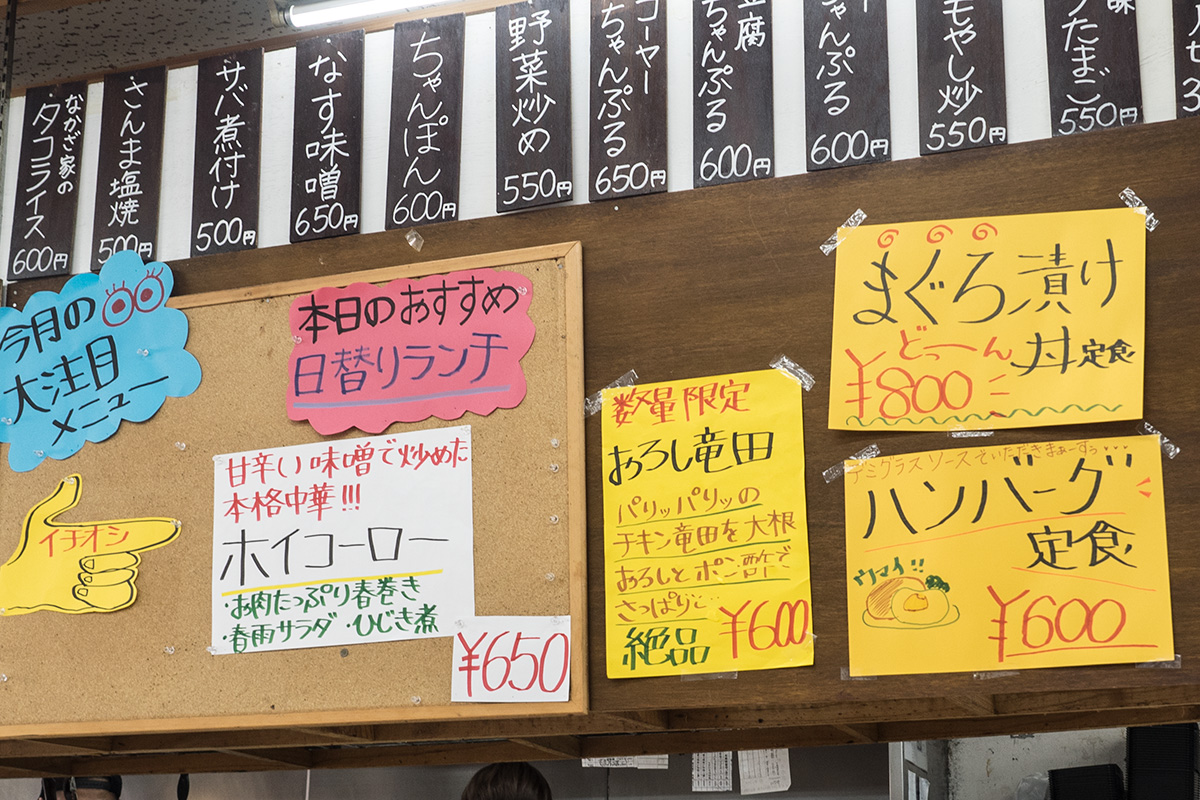 なかざ家の
タコライス
600円
さんま塩焼
500円
サバ煮付け
500円
なす味噌
650円
ちゃんぽん
600円
野菜炒め
550円
ゴーヤー
ちゃんぷる
650円
豆腐
ちゃんぷる
600円
ちゃんぷる
600円
モやし炒
550円
うたまご
550円
今月の
大注目
メニュー
イチオシ
本日のおすすめ
日替りランチ
甘辛い味噌で炒めた
本格中華!!!
ホイコーロー
・お肉たっぷり春巻き
・春雨サラダ ・ひじき煮
¥650
数量限定
おろし竜田
パリッパリッの
チキン竜田を大根
おろしとポン酢で
さっぱりと…
絶品
¥600
まぐろ漬け
どぅーん 丼定食
¥800
デミグラスソースでいただきまぁーすっ♥♥♥
ハンバーグ
定食
ウマイ!!
¥600